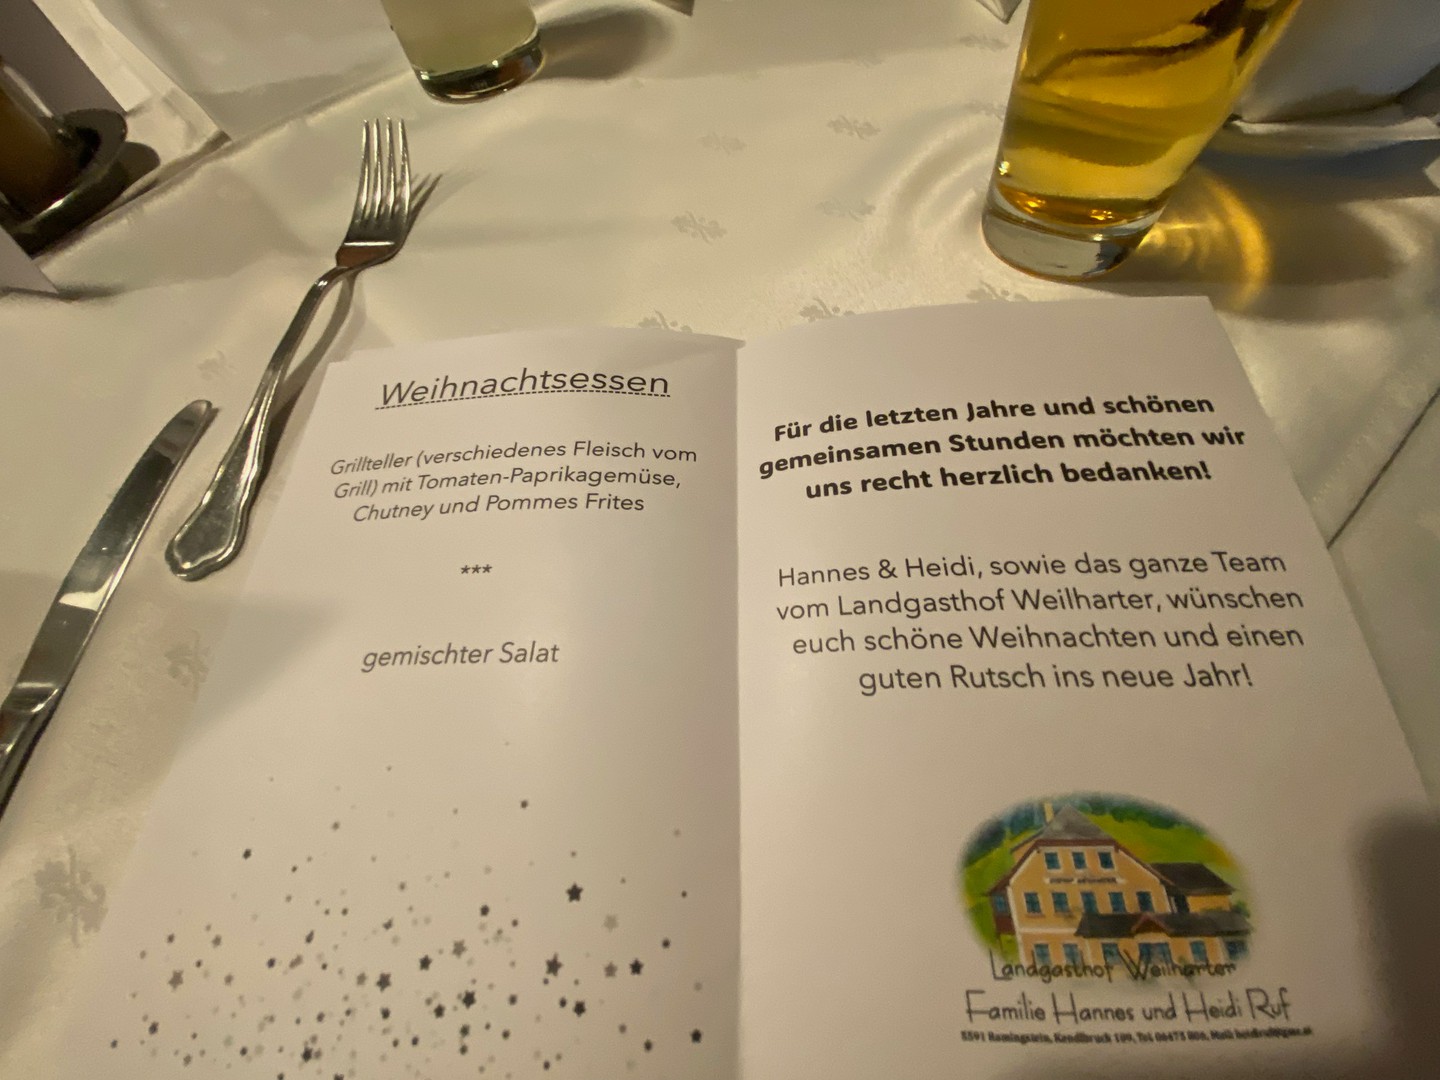 Weihnachtsessen
Grillteller (verschiedenes Fleisch vom
Grill) mit Tomaten-Paprikagemüse,
Chutney und Pommes Frites
***
gemischter Salat
Für die letzten Jahre und schönen
gemeinsamen Stunden möchten wir
uns recht herzlich bedanken!
Hannes & Heidi, sowie das ganze Team
vom Landgasthof Weilharter, wünschen
euch schöne Weihnachten und einen
guten Rutsch ins neue Jahr!
Landgasthof Weilharter
Familie Hannes und Heidi Ruf
5591 Ramingstein, Kendlbruck 109, Tel 06475 800, Mail